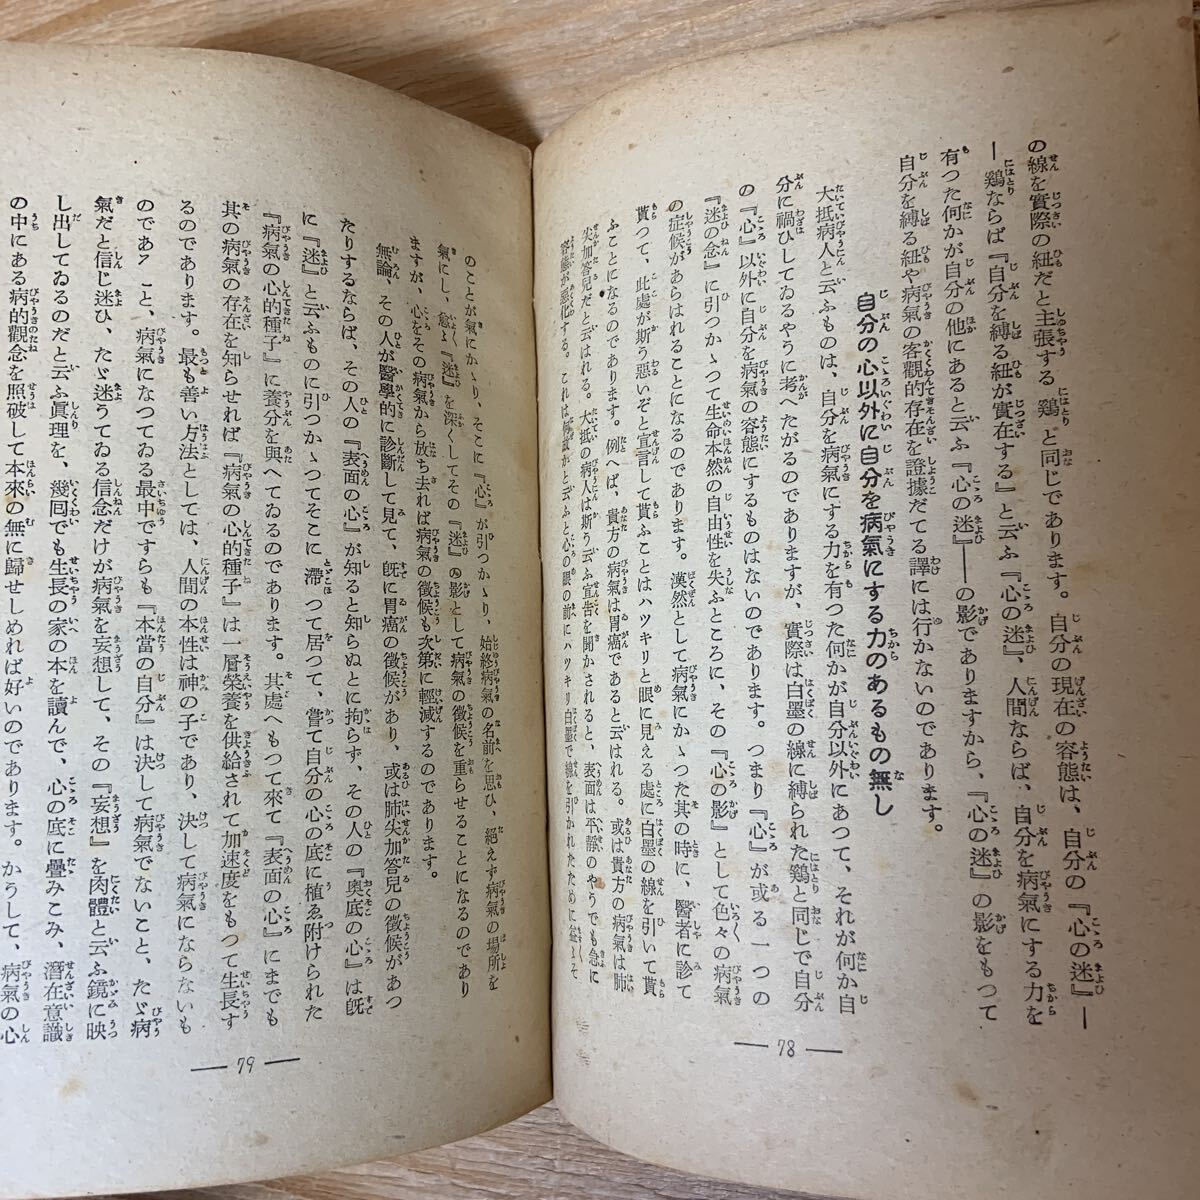 の線を實際の紐だと主張する鷄と同じであります。自分の現在の容態は、自分の『心の迷』―
―鷄ならば『自分を縛る紐が實在する』と云ふ『心の迷』、人間ならば、自分を病氣にする力を
有つた何かが自分の他にあると云ふ『心の迷』――の影でありますから、『心の迷』の影をもつて
自分を縛る紐や病氣の客觀的存在を證據だてる譯には行かないのであります。
自分の心以外に自分を病氣にする力のあるもの無し
大抵病人と云ふものは、自分を病氣にする力を有つた何かが自分以外にあつて、それが何か自
分に禍ひしてゐるやうに考へたがるのでありますが、實際は白墨の線に縛られた鷄と同じで自分
の『心』以外に自分を病氣の容態にするものはないのであります。つまり『心』が或る一つの
『迷の念』に引つかゝつて生命本然の自由性を失ふところに、その『心の影』として色々の病氣
の症候があらはれることになるのであります。漠然として病氣にかゝつた其の時に、醫者に診て
貰つて、此處が斯う惡いぞと宣言して貰ふことはハツキリと眼に見える處に白墨の線を引いて貰
ふことになるのであります。例へば、貴方の病氣は胃癌であると云はれる。或は貴方の病氣は肺
尖加答兒だと云はれる。大抵の病人は斯う云ふ宣告を聞かされると、表面は平靜のやうでも急に
容態が惡化する。これは何故かと云ふと心の眼の前にハツキリ白墨で線を引かれたために益々そ
― 78 ―
のことが氣にかゝり、そこに『心』が引つかゝり、始終病氣の名前を思ひ、絕えず病氣の場所を
氣にし、愈々『迷』を深くしてその『迷』の影として病氣の徵候を重らせることになるのであり
ますが、心をその病氣から放ち去れば病氣の徵候も次第に輕減するのであります。
無論、その人が醫學的に診斷して見て、旣に胃癌の徵候があり、或は肺尖加答兒の徵候があつ
たりするならば、その人の『表面の心』が知ると知らぬとに拘らず、その人の『奧底の心』は旣
に『迷』と云ふものに引つかゝつてそこに滯つて居つて、嘗て自分の心の底に植ゑ附けられた
『病氣の心的種子』に養分を與へてゐるのであります。其處へもつて來て『表面の心』にまでも
其の病氣の存在を知らせれば『病氣の心的種子』は一層榮養を供給されて加速度をもつて生長す
るのであります。最も善い方法としては、人間の本性は神の子であり、決して病氣にならないも
のであること、病氣になつてゐる最中ですらも『本當の自分』は決して病氣でないこと、たゞ病
氣だと信じ迷ひ、たゞ迷うてゐる信念だけが病氣を妄想して、その『妄想』を肉體と云ふ鏡に映
し出してゐるのだと云ふ眞理を、幾囘でも生長の家の本を讀んで、心の底に疊みこみ、潛在意識
の中にある病的觀念を照破して本來の無に歸せしめれば好いのであります。かうして、病氣の心
― 79 ―